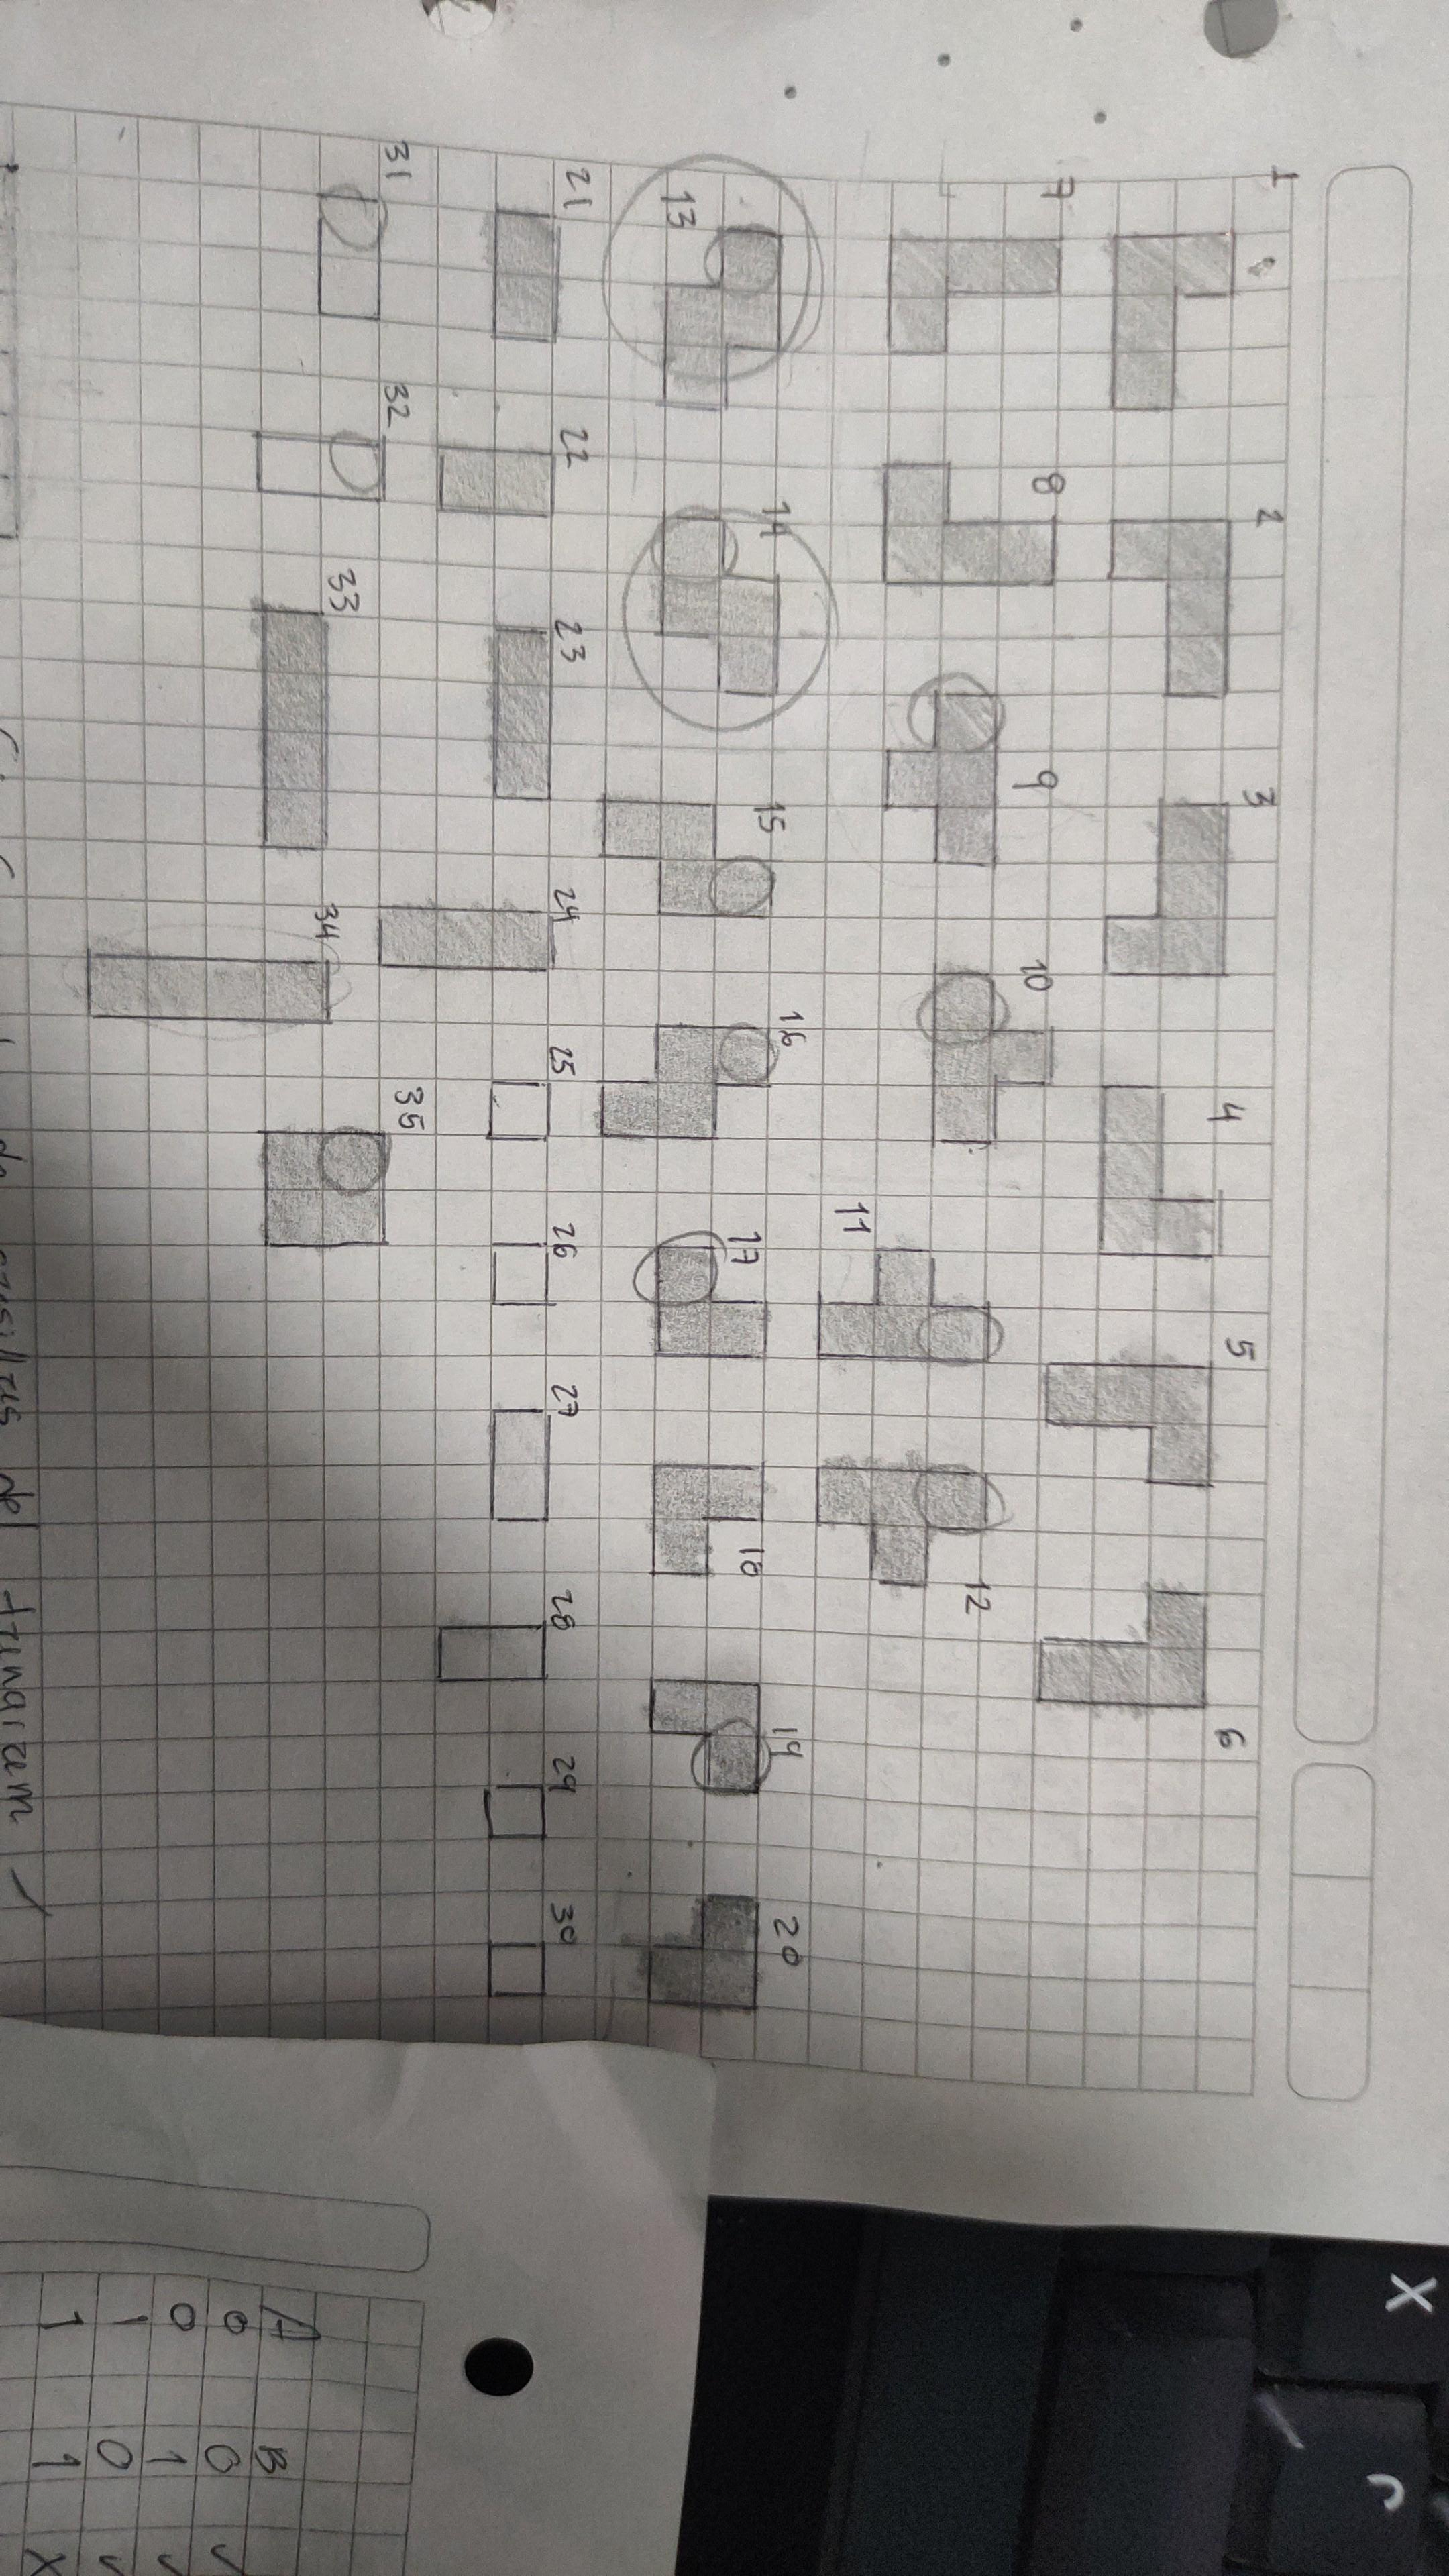 1 2 3 4 5 6
7 8 9 10 11 12
13 14 15 16 17 18 19 20
21 22 23 24 25 26 27 28 29 30
31 32 33 34 35
del
A B
0 0 ✓
0 1 ✓
1 0 ✓
1 1 X
X
C